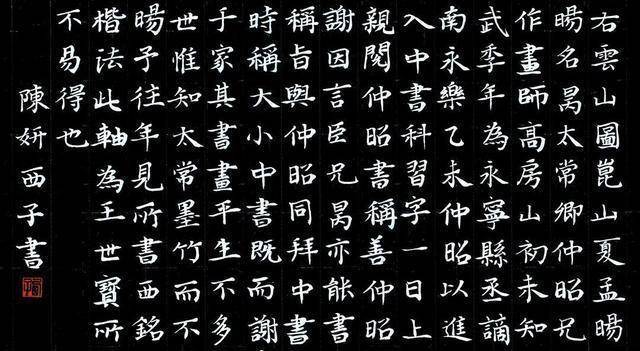 右雲山圖崑山夏孟暘
暘名昺太常卿仲昭兄
作畫師高房山初未知
武季年為永寧縣丞謫
南永樂乙未仲昭以進
入中書科習字一日上
親閱仲昭書稱善仲昭
謝因言臣兄昺亦能書
稱旨與仲昭同拜中書
時稱大小中書既而謝
于家其書畫平生不多
世惟知太常墨竹而不
暘予往年見所書西銘
楷法此軸為王世寶所
不易得也
陳妍西子書